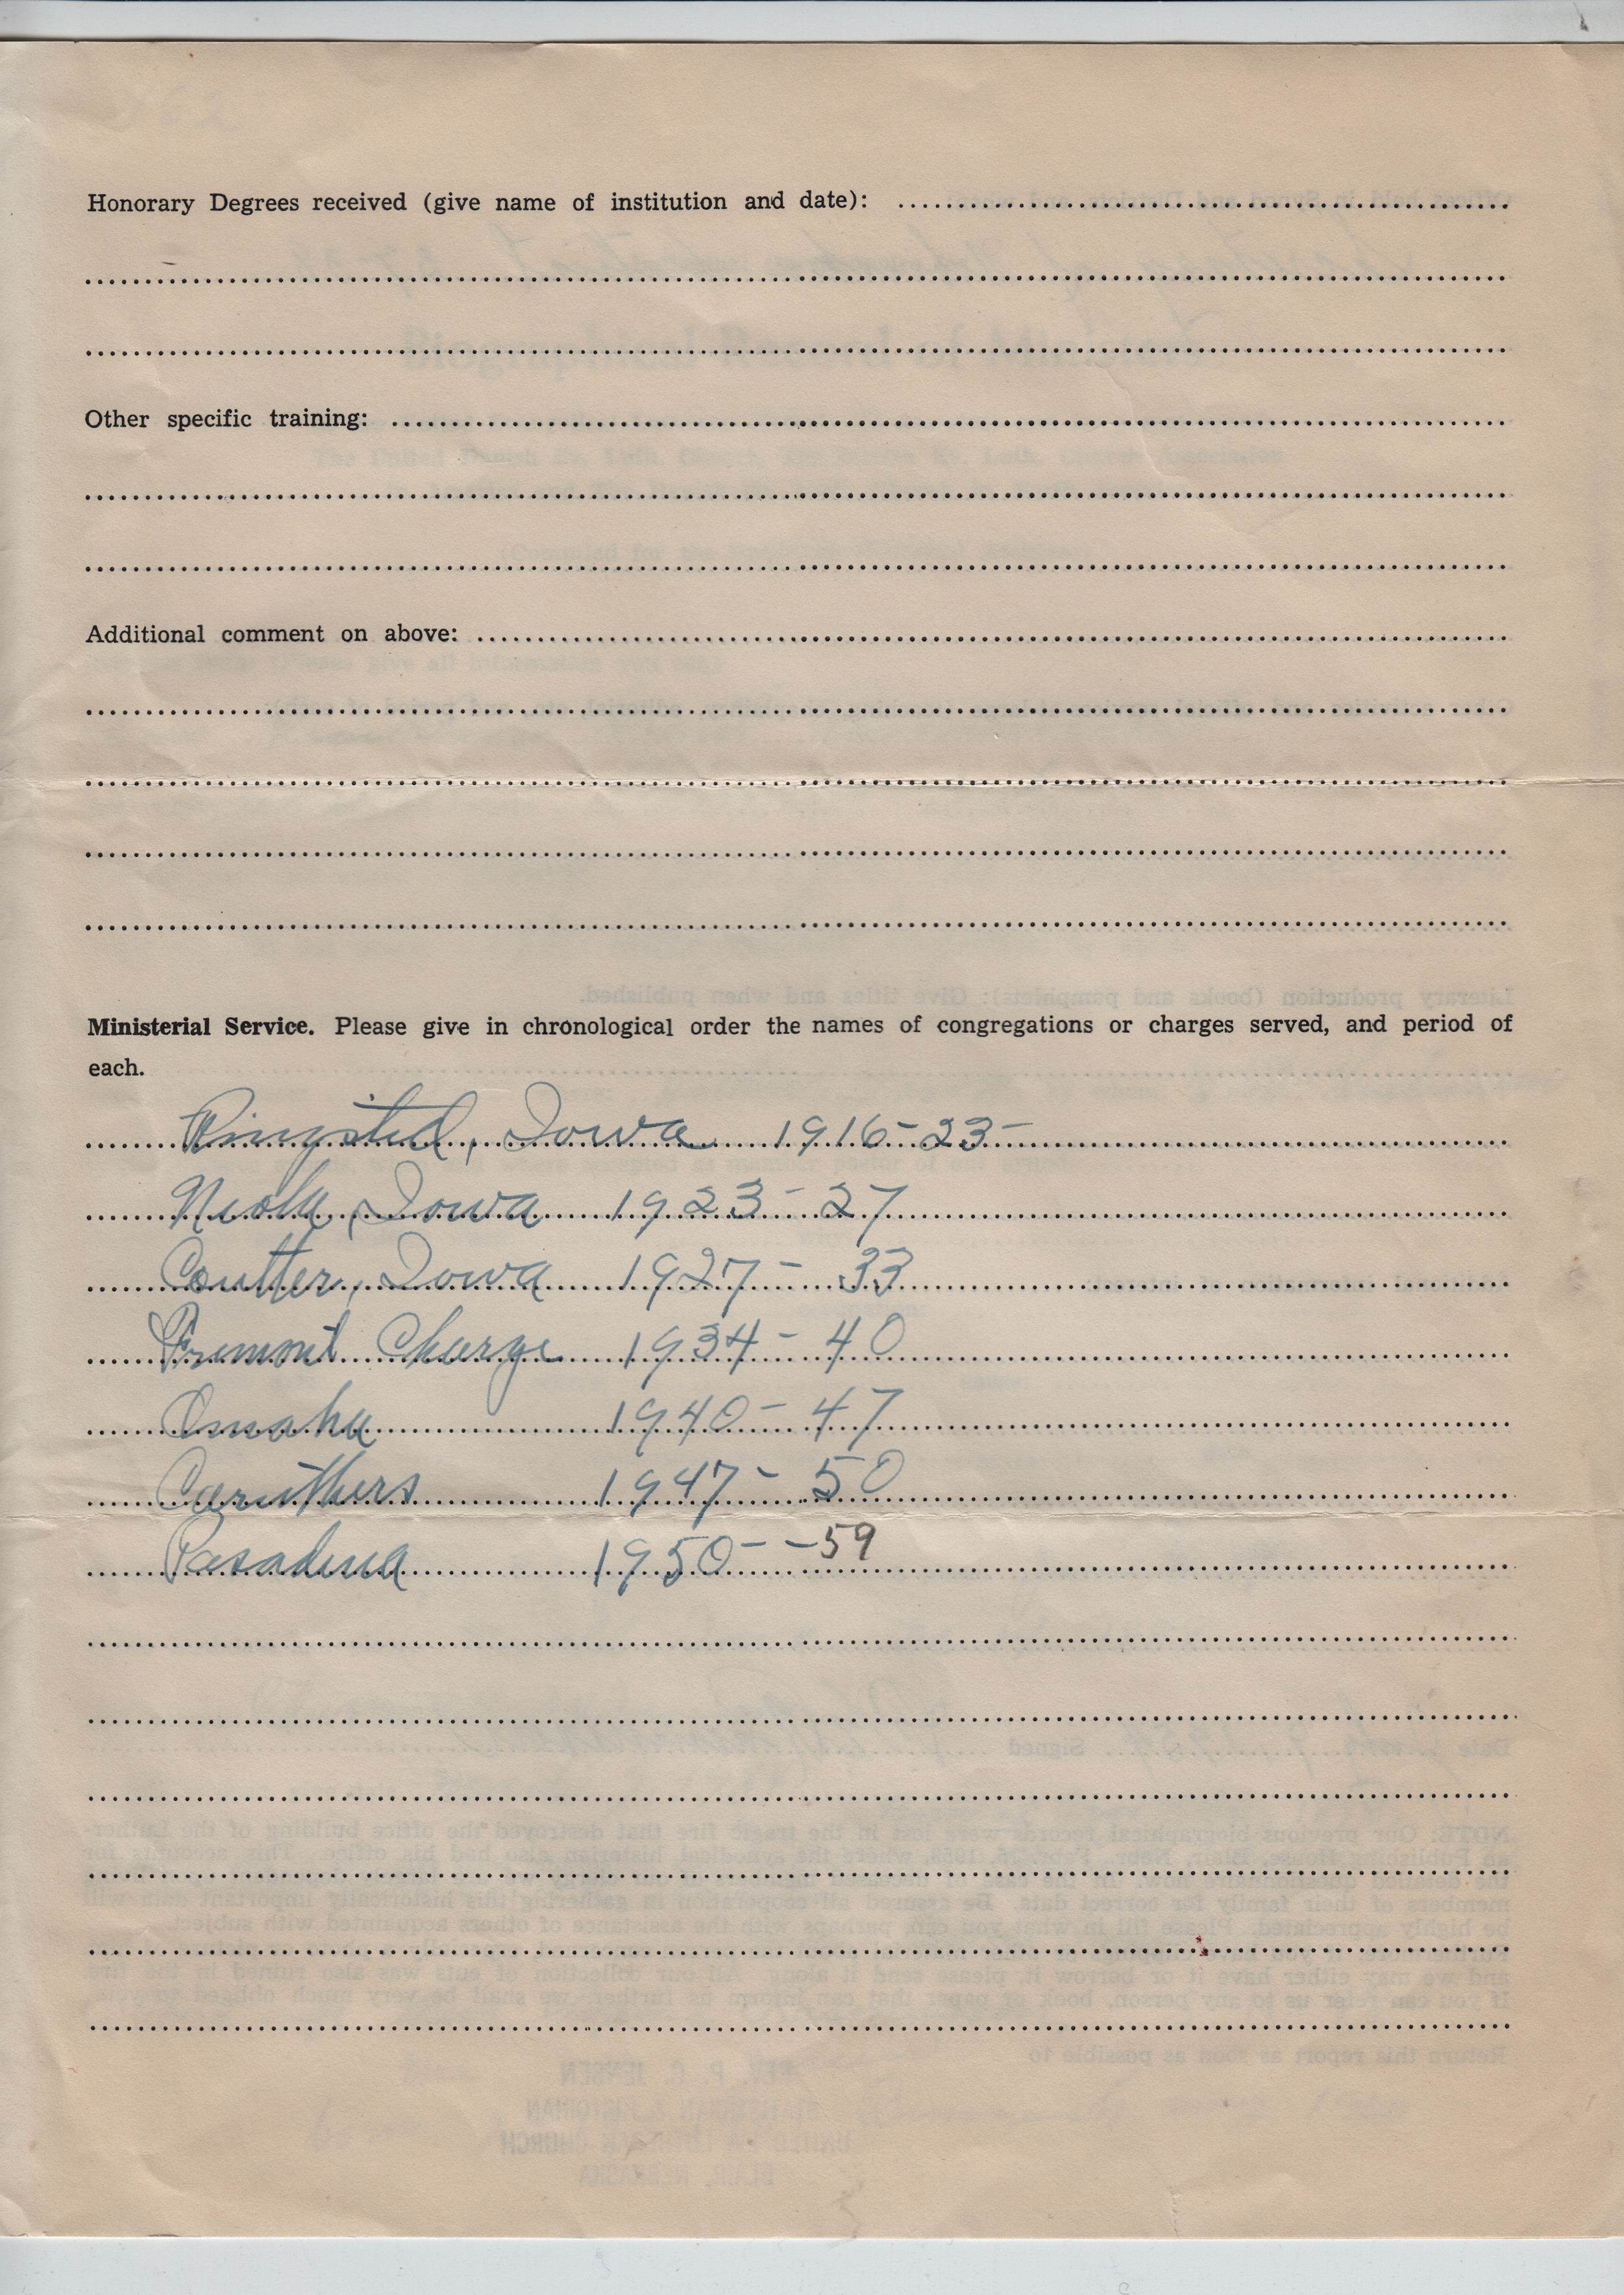 Honorary Degrees received (give name of institution and date):
Other specific training:
Additional comment on above:
Ministerial Service. Please give in chronological order the names of congregations or charges served, and period of
each.
Ringsted, Iowa 1916-23-
Neola, Iowa 1923-27
Coulter, Iowa 1927- 33
Fremont Charge 1934-40
Omaha 1940-47
Caruthers 1947-50
Pasadena 1950- -59